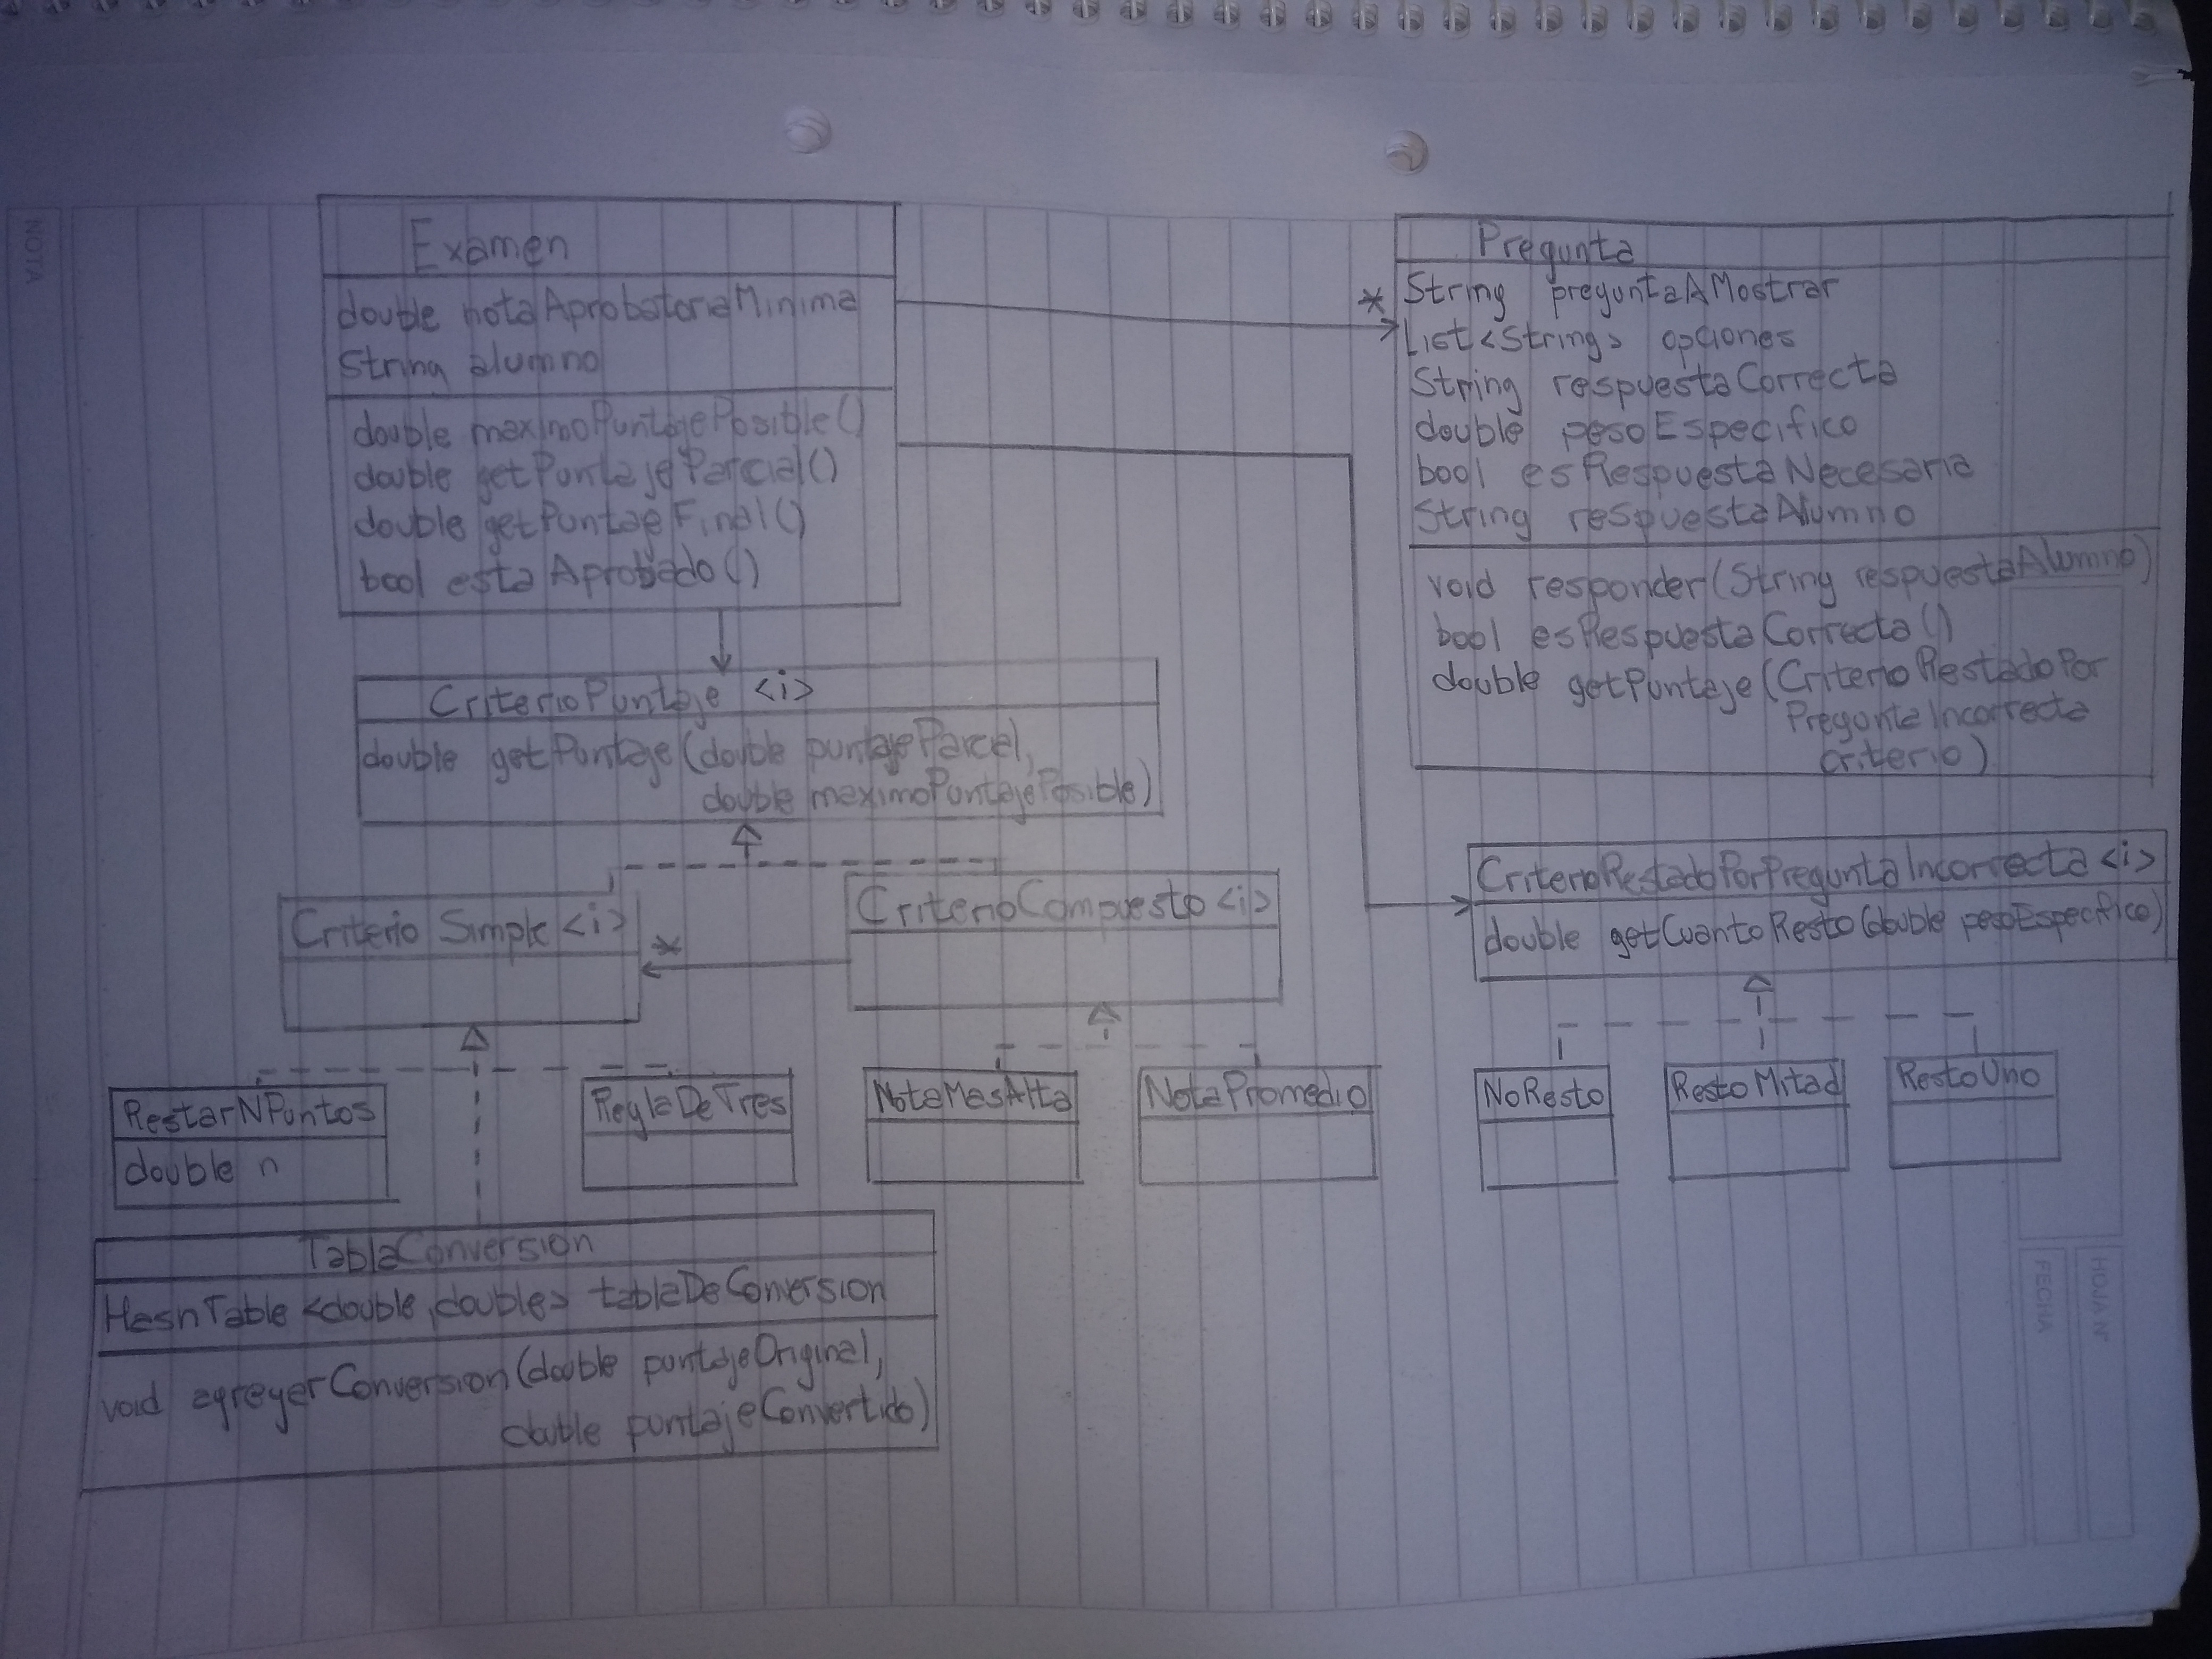 NOTA
Examen
double notaAprobatoriaMinima
String alumno
double maximoPuntajePosible()
double getPuntajeParcial()
double getPuntajeFinal()
bool estaAprobado()
Pregunta
*
String preguntaAMostrar
List<String> opciones
String respuestaCorrecta
double pesoEspecifico
bool esRespuestaNecesaria
String respuestaAlumno
void responder(String respuestaAlumno)
bool esRespuestaCorrecta()
double getPuntaje(CriterioRestadoPor
PreguntaIncorrecta
criterio)
CriterioPuntaje <i>
double getPuntaje(double puntajeParcial,
double maximoPuntajePosible)
Criterio Simple <i>
*
CriterioCompuesto <i>
CriterioRestadoPorPreguntaIncorrecta <i>
double getCuantoResto(double pesoEspecifico)
RestarNPuntos
double n
ReglaDeTres
NotaMasAlta
NotaPromedio
NoResto
RestoMitad
RestoUno
TablaConversion
HashTable <double, double> tablaDeConversion
void agregarConversion(double puntajeOriginal,
double puntajeConvertido)
FECHA
HOJA Nº